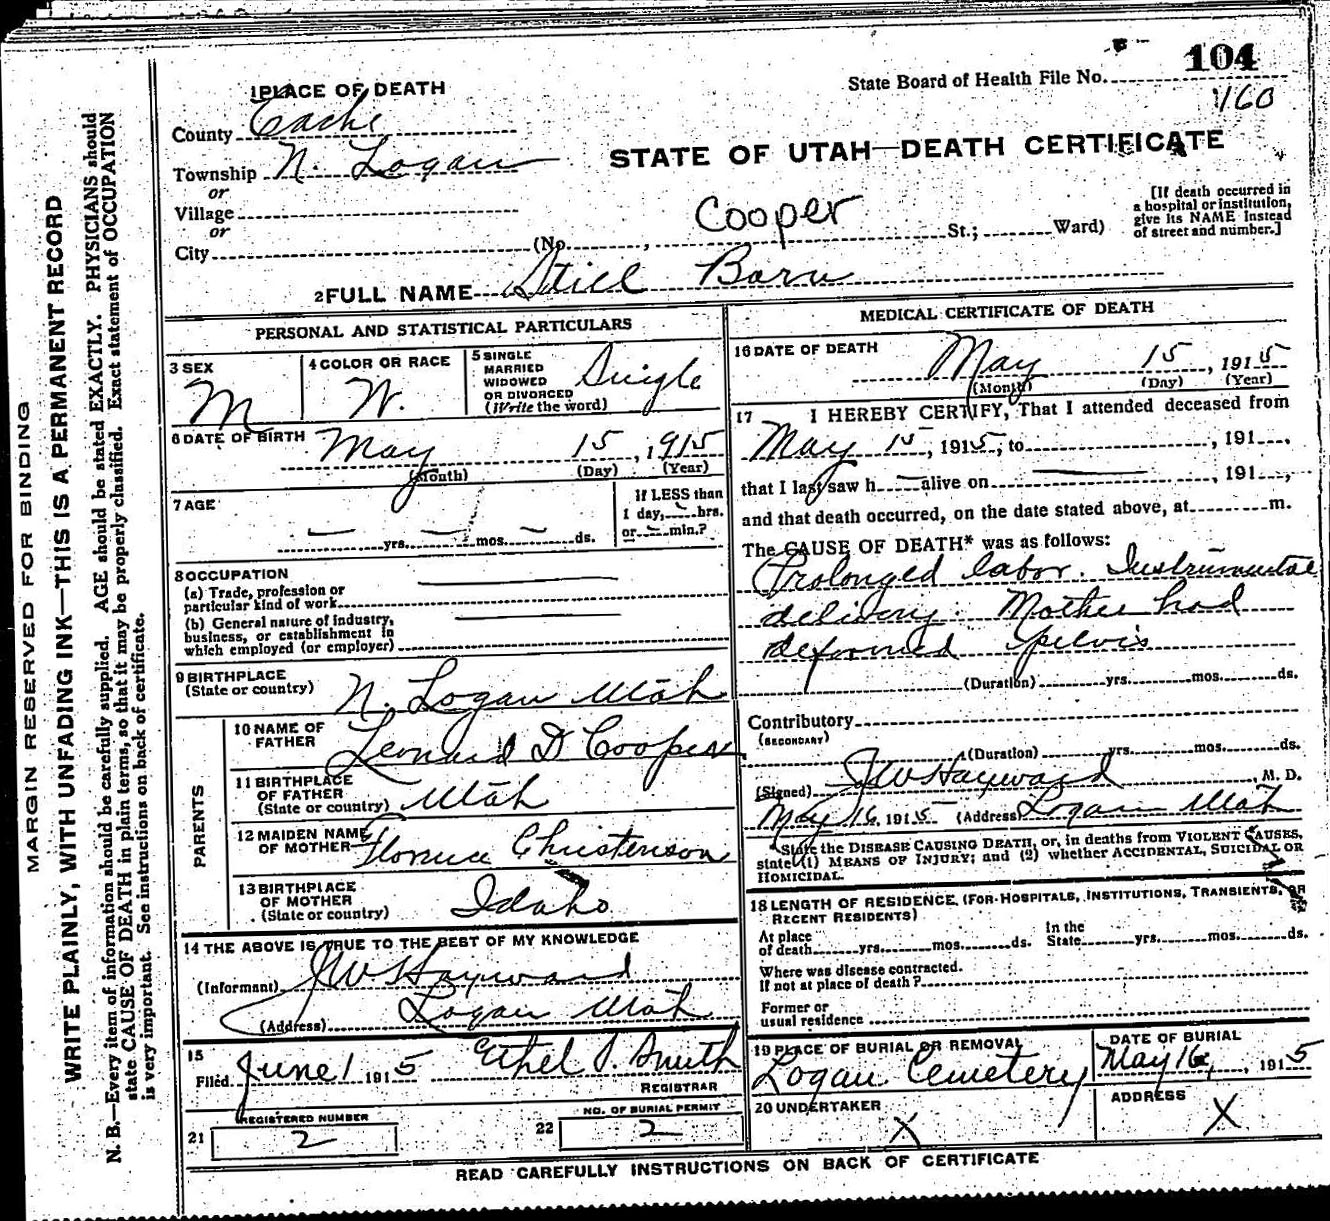 104
State Board of Health File No.
160
1 PLACE OF DEATH
County Cache
STATE OF UTAH—DEATH CERTIFICATE
Township N. Logan
or
Village
or
City (No. , Cooper St.; Ward)
[If death occurred in
a hospital or institution,
give its NAME instead
of street and number.]
2 FULL NAME Still Born
PERSONAL AND STATISTICAL PARTICULARS
3 SEX
M
4 COLOR OR RACE
W.
5 SINGLE
MARRIED
WIDOWED
OR DIVORCED
(Write the word)
Single
6 DATE OF BIRTH May 15, 1915
(Month) (Day) (Year)
7 AGE
— yrs. — mos. — ds.
If LESS than
1 day, — hrs.
or — min.?
8 OCCUPATION
(a) Trade, profession or
particular kind of work
(b) General nature of industry,
business, or establishment in
which employed (or employer)
9 BIRTHPLACE
(State or country) N. Logan Utah
PARENTS
10 NAME OF
FATHER Leonard D Cooper
11 BIRTHPLACE
OF FATHER
(State or country) Utah
12 MAIDEN NAME
OF MOTHER Florence Christenson
13 BIRTHPLACE
OF MOTHER
(State or country) Idaho
14 THE ABOVE IS TRUE TO THE BEST OF MY KNOWLEDGE
(Informant) J W Hayward
(Address) Logan Utah
15
Filed June 1 1915 Ethel S. Smith
REGISTRAR
21 REGISTERED NUMBER
2
22 NO. OF BURIAL PERMIT
2
MEDICAL CERTIFICATE OF DEATH
16 DATE OF DEATH May 15, 1915
(Month) (Day) (Year)
17 I HEREBY CERTIFY, That I attended deceased from
May 15, 1915, to , 191 ,
that I last saw h — alive on — , 191 ,
and that death occurred, on the date stated above, at m.
The CAUSE OF DEATH* was as follows:
Prolonged labor. Instrumental
delivery. Mother had
deformed pelvis
(Duration) yrs. mos. ds.
Contributory
(SECONDARY)
(Duration) yrs. mos. ds.
(Signed) J W Hayward, M. D.
May 16, 1915 (Address) Logan Utah
*State the DISEASE CAUSING DEATH, or, in deaths from VIOLENT CAUSES,
state (1) MEANS OF INJURY; and (2) whether ACCIDENTAL, SUICIDAL OR
HOMICIDAL.
18 LENGTH OF RESIDENCE, (FOR HOSPITALS, INSTITUTIONS, TRANSIENTS, OR
RECENT RESIDENTS)
At place
of death yrs. mos. ds.
In the
State yrs. mos. ds.
Where was disease contracted.
If not at place of death?
Former or
usual residence
19 PLACE OF BURIAL OR REMOVAL
Logan Cemetery
DATE OF BURIAL
May 16, 1915
20 UNDERTAKER
X
ADDRESS
X
READ CAREFULLY INSTRUCTIONS ON BACK OF CERTIFICATE
MARGIN RESERVED FOR BINDING
WRITE PLAINLY, WITH UNFADING INK—THIS IS A PERMANENT RECORD
N. B.—Every item of information should be carefully supplied. AGE should be stated EXACTLY. PHYSICIANS should
state CAUSE OF DEATH in plain terms, so that it may be properly classified. Exact statement of OCCUPATION
is very important. See instructions on back of certificate.